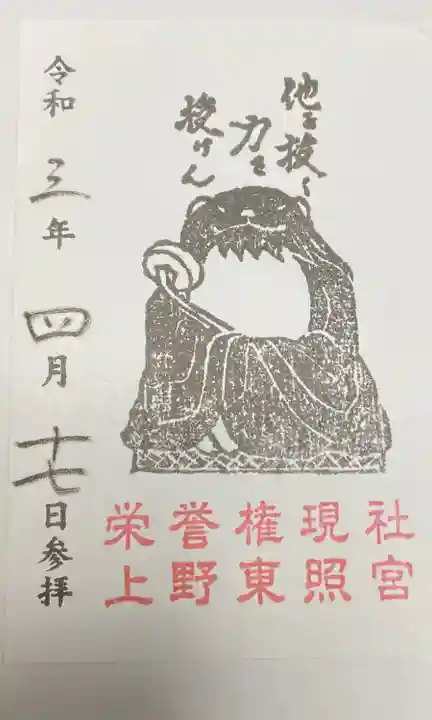 他を抜く
力を
授けん
令和三年四月十七日参拝
栄誉権現社
上野東照宮